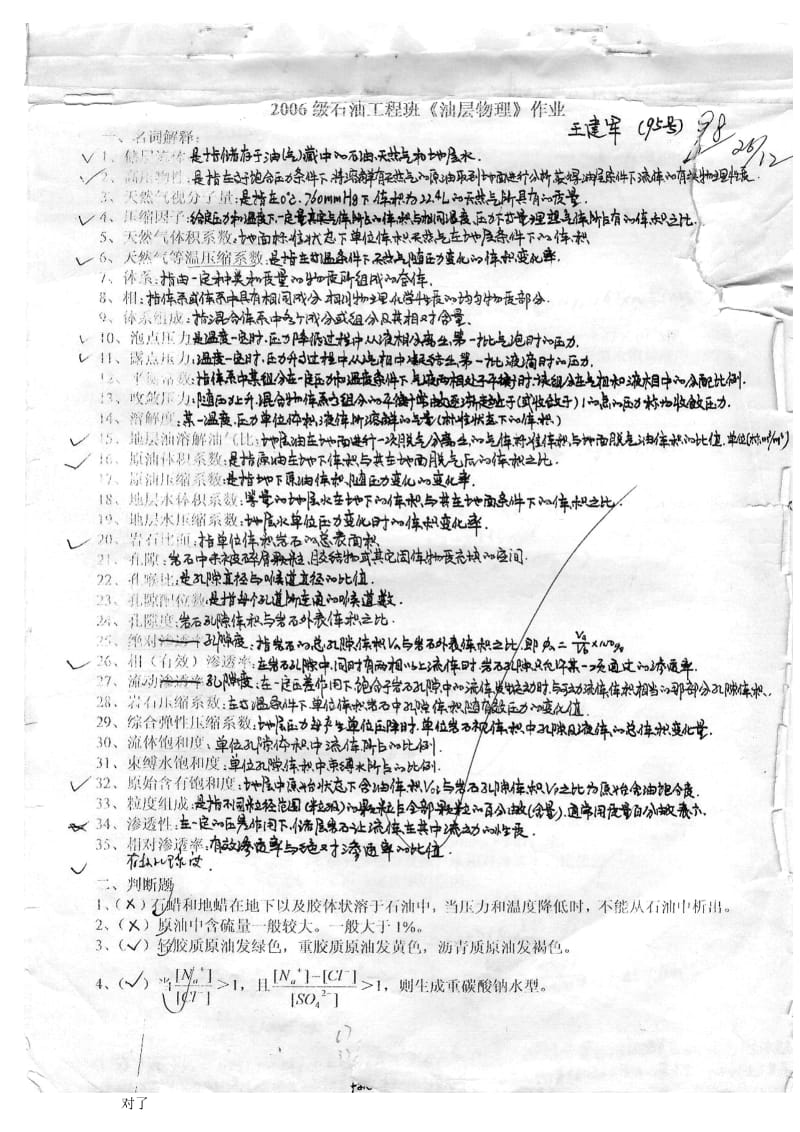 2006级石油工程班《油层物理》作业
王建军 (95号) 98
26/12
一、名词解释:
1、储层流体:是指储存于油(气)藏中的石油、天然气和地层水.
2、高压物性:
3、天然气视分子量:是指在0℃、760mmHg下,体积为22.4L的天然气所具有的质量.
4、压缩因子:给定压力和温度下,一定量真实气体所占的体积与相同温度、压力下等量理想气体所占有的体积之比.
5、天然气体积系数:地面标准状态下单位体积天然气在地层条件下的体积
6、天然气等温压缩系数:是指在等温条件下天然气随压力变化的体积变化率.
7、体系:指由一定种类和质量的物质所组成的整体.
8、相:指体系或体系中具有相同成分,相同物理化学性质的均匀物质部分.
9、体系组成:指混合体系中各个成分或组分及其相对含量.
10、泡点压力:是温度一定时,压力降低过程中从液相分离出第一批气泡时的压力.
11、露点压力:温度一定时,压力升高过程中从气相中凝结出第一批液滴时的压力
12、平衡常数:指体系中某组分在一定压力和温度条件下,气液两相处于平衡时,该组分在气相和液相中的分配比例.
13、收敛压力:
14、溶解度:某一温度、压力单位体积液体所溶解的气量(标准状态下的体积)
15、地层油溶解油气比:地层油在地面进行一次脱气分离出的气体标准体积与地面脱气油体积的比值.单位(标m³/m³)
16、原油体积系数:是指原油在地下体积与其在地面脱气后的体积之比.
17、原油压缩系数:是指地下原油体积随压力变化的变化率.
18、地层水体积系数:等量的地层水在地下的体积与其在地面条件下的体积之比.
19、地层水压缩系数:地层水单位压力变化时的体积变化率.
20、岩石比面:指单位体积岩石的总表面积.
21、孔隙:岩石中未被碎屑颗粒、胶结物或其它固体物质充填的空间.
22、孔喉比:是孔隙直径与喉道直径的比值.
23、孔隙配位数:是指每个孔道所连通的喉道数.
24、孔隙度:岩石孔隙体积与岩石外表体积之比.
25、绝对渗透率孔隙度:指岩石的总孔隙体积Va与岩石外表体积之比.即φa=Va/Vb×100%
26、相(有效)渗透率:在岩石孔隙中,同时有两相以上流体时,岩石孔隙只允许某一项通过的渗透率.
27、流动渗透率孔隙度:在一定压差作用下,饱含于岩石孔隙中的流体发生运动时,与可动流体体积相当的那部分孔隙体积.
28、岩石压缩系数:在等温条件下单位体积岩石中孔隙体积随有效压力的变化值.
29、综合弹性压缩系数:地层压力每产生单位压降时,单位岩石视体积中孔隙及液体的总体积变化量.
30、流体饱和度:单位孔隙体积中流体所占的比例.
31、束缚水饱和度:单位孔隙体积中束缚水所占的比例.
32、原始含有饱和度:地层中原始状态下含油体积Voi与岩石孔隙体积Vp之比为原始含油饱合度.
33、粒度组成:是指不同粒径范围(粒级)的颗粒占全部颗粒的百分数(含量).通常用质量百分数表示.
34、渗透性:在一定的压差作用下,储层岩石让流体在其中流动的性质.
35、相对渗透率:有效渗透率与绝对渗透率的比值.
二、判断题
1、(×)石蜡和地蜡在地下以及胶体状溶于石油中,当压力和温度降低时,不能从石油中析出。
2、(×)原油中含硫量一般较大。一般大于1%。
3、(✓)轻胶质原油发绿色,重胶质原油发黄色,沥青质原油发褐色。
4、(✓)当[Na⁺]/[Cl⁻]>1,且([Na⁺]-[Cl⁻])/[SO₄²⁻]>1,则生成重碳酸钠水型。
对了